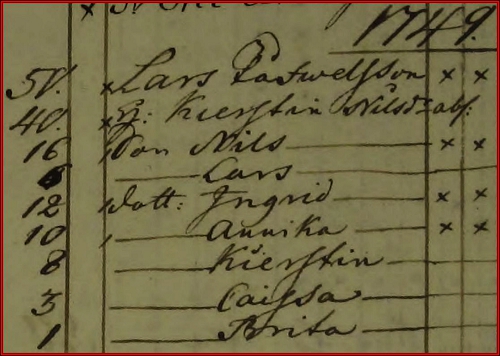 1749.
51. × Lars × ×
40. × H: Kierstin Nilsdr abs:
16 Son Nils × ×
6 Lars
12 Dott: Ingrid × ×
10 Annika × ×
8 Kierstin
3 Caissa
1 Brita